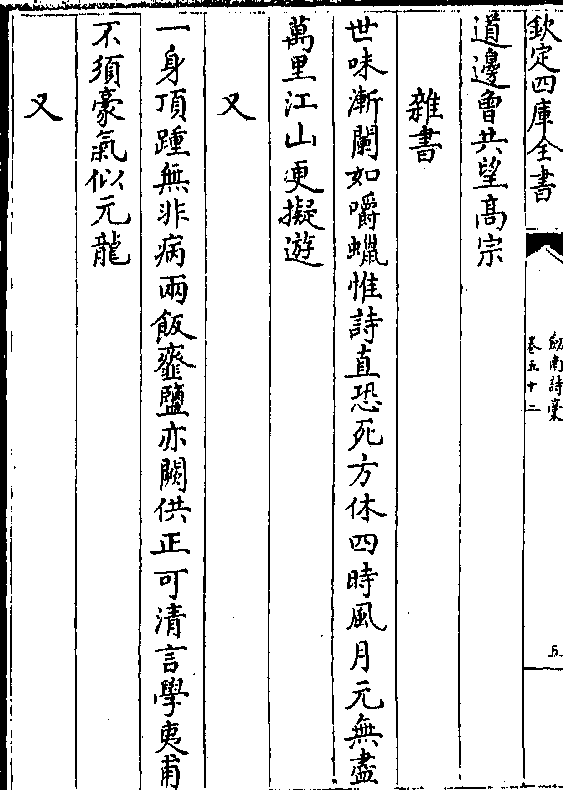 欽定四庫全書
劔南詩稾
卷五十二
五
道邊曾共望髙宗
雜書
世味漸闌如嚼蠟惟詩直恐死方休四時風月元無盡
萬里江山更擬遊
又
一身頂踵無非病兩飯虀鹽亦闕供正可清言學夷甫
不須豪氣似元龍
又